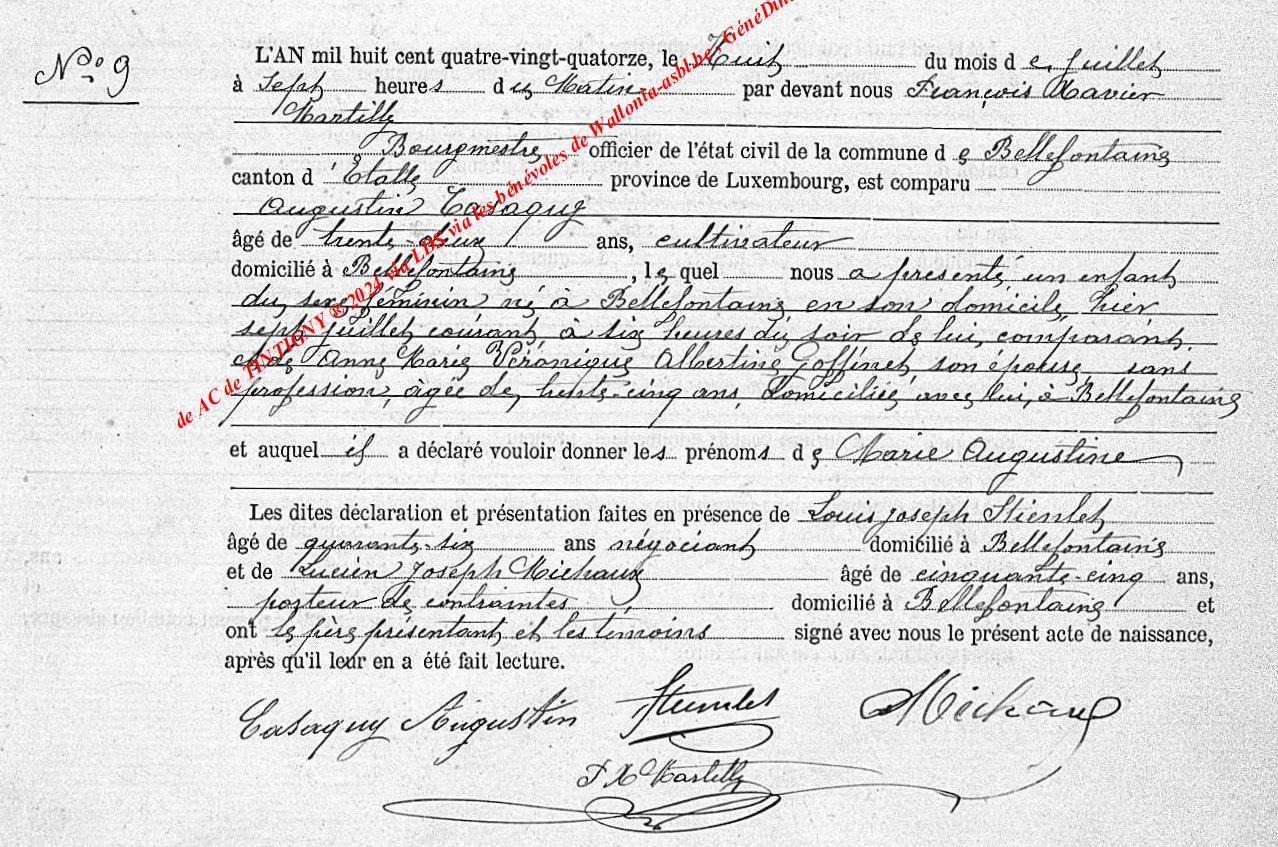 N° 9
L'AN mil huit cent quatre-vingt-quatorze, le huit du mois de Juillet
à Sept heures du Matin par devant nous François Xavier
Martilly
Bourgmestre officier de l'état civil de la commune de Bellefontaine
canton d'Etalle province de Luxembourg, est comparu
Augustin Casaquy
âgé de trente-deux ans, cultivateur
domicilié à Bellefontaine, le quel nous a présenté un enfant
du sexe féminin né à Bellefontaine en son domicile, hier
sept juillet courant, à six heures du soir de lui, comparant,
et de Anne Marie Véronique Albertine Goffinet, son épouse, sans
profession, âgée de trente-cinq ans, domiciliée avec lui, à Bellefontaine
et auquel il a déclaré vouloir donner les prénoms de Marie Augustine
Les dites déclaration et présentation faites en présence de Louis Joseph Stienlet
âgé de quarante-six ans négociant domicilié à Bellefontaine
et de Lucien Joseph Michaux âgé de cinquante-cinq ans,
porteur de contraintes domicilié à Bellefontaine et
ont le père présentant et les témoins signé avec nous le présent acte de naissance,
après qu'il leur en a été fait lecture.
Casaquy Augustin Stienlet Michaux
F X Martilly
de AC de TINTIGNY ® 2024 via LDS via les bénévoles de Wallonia-asbl.be, GénéDin